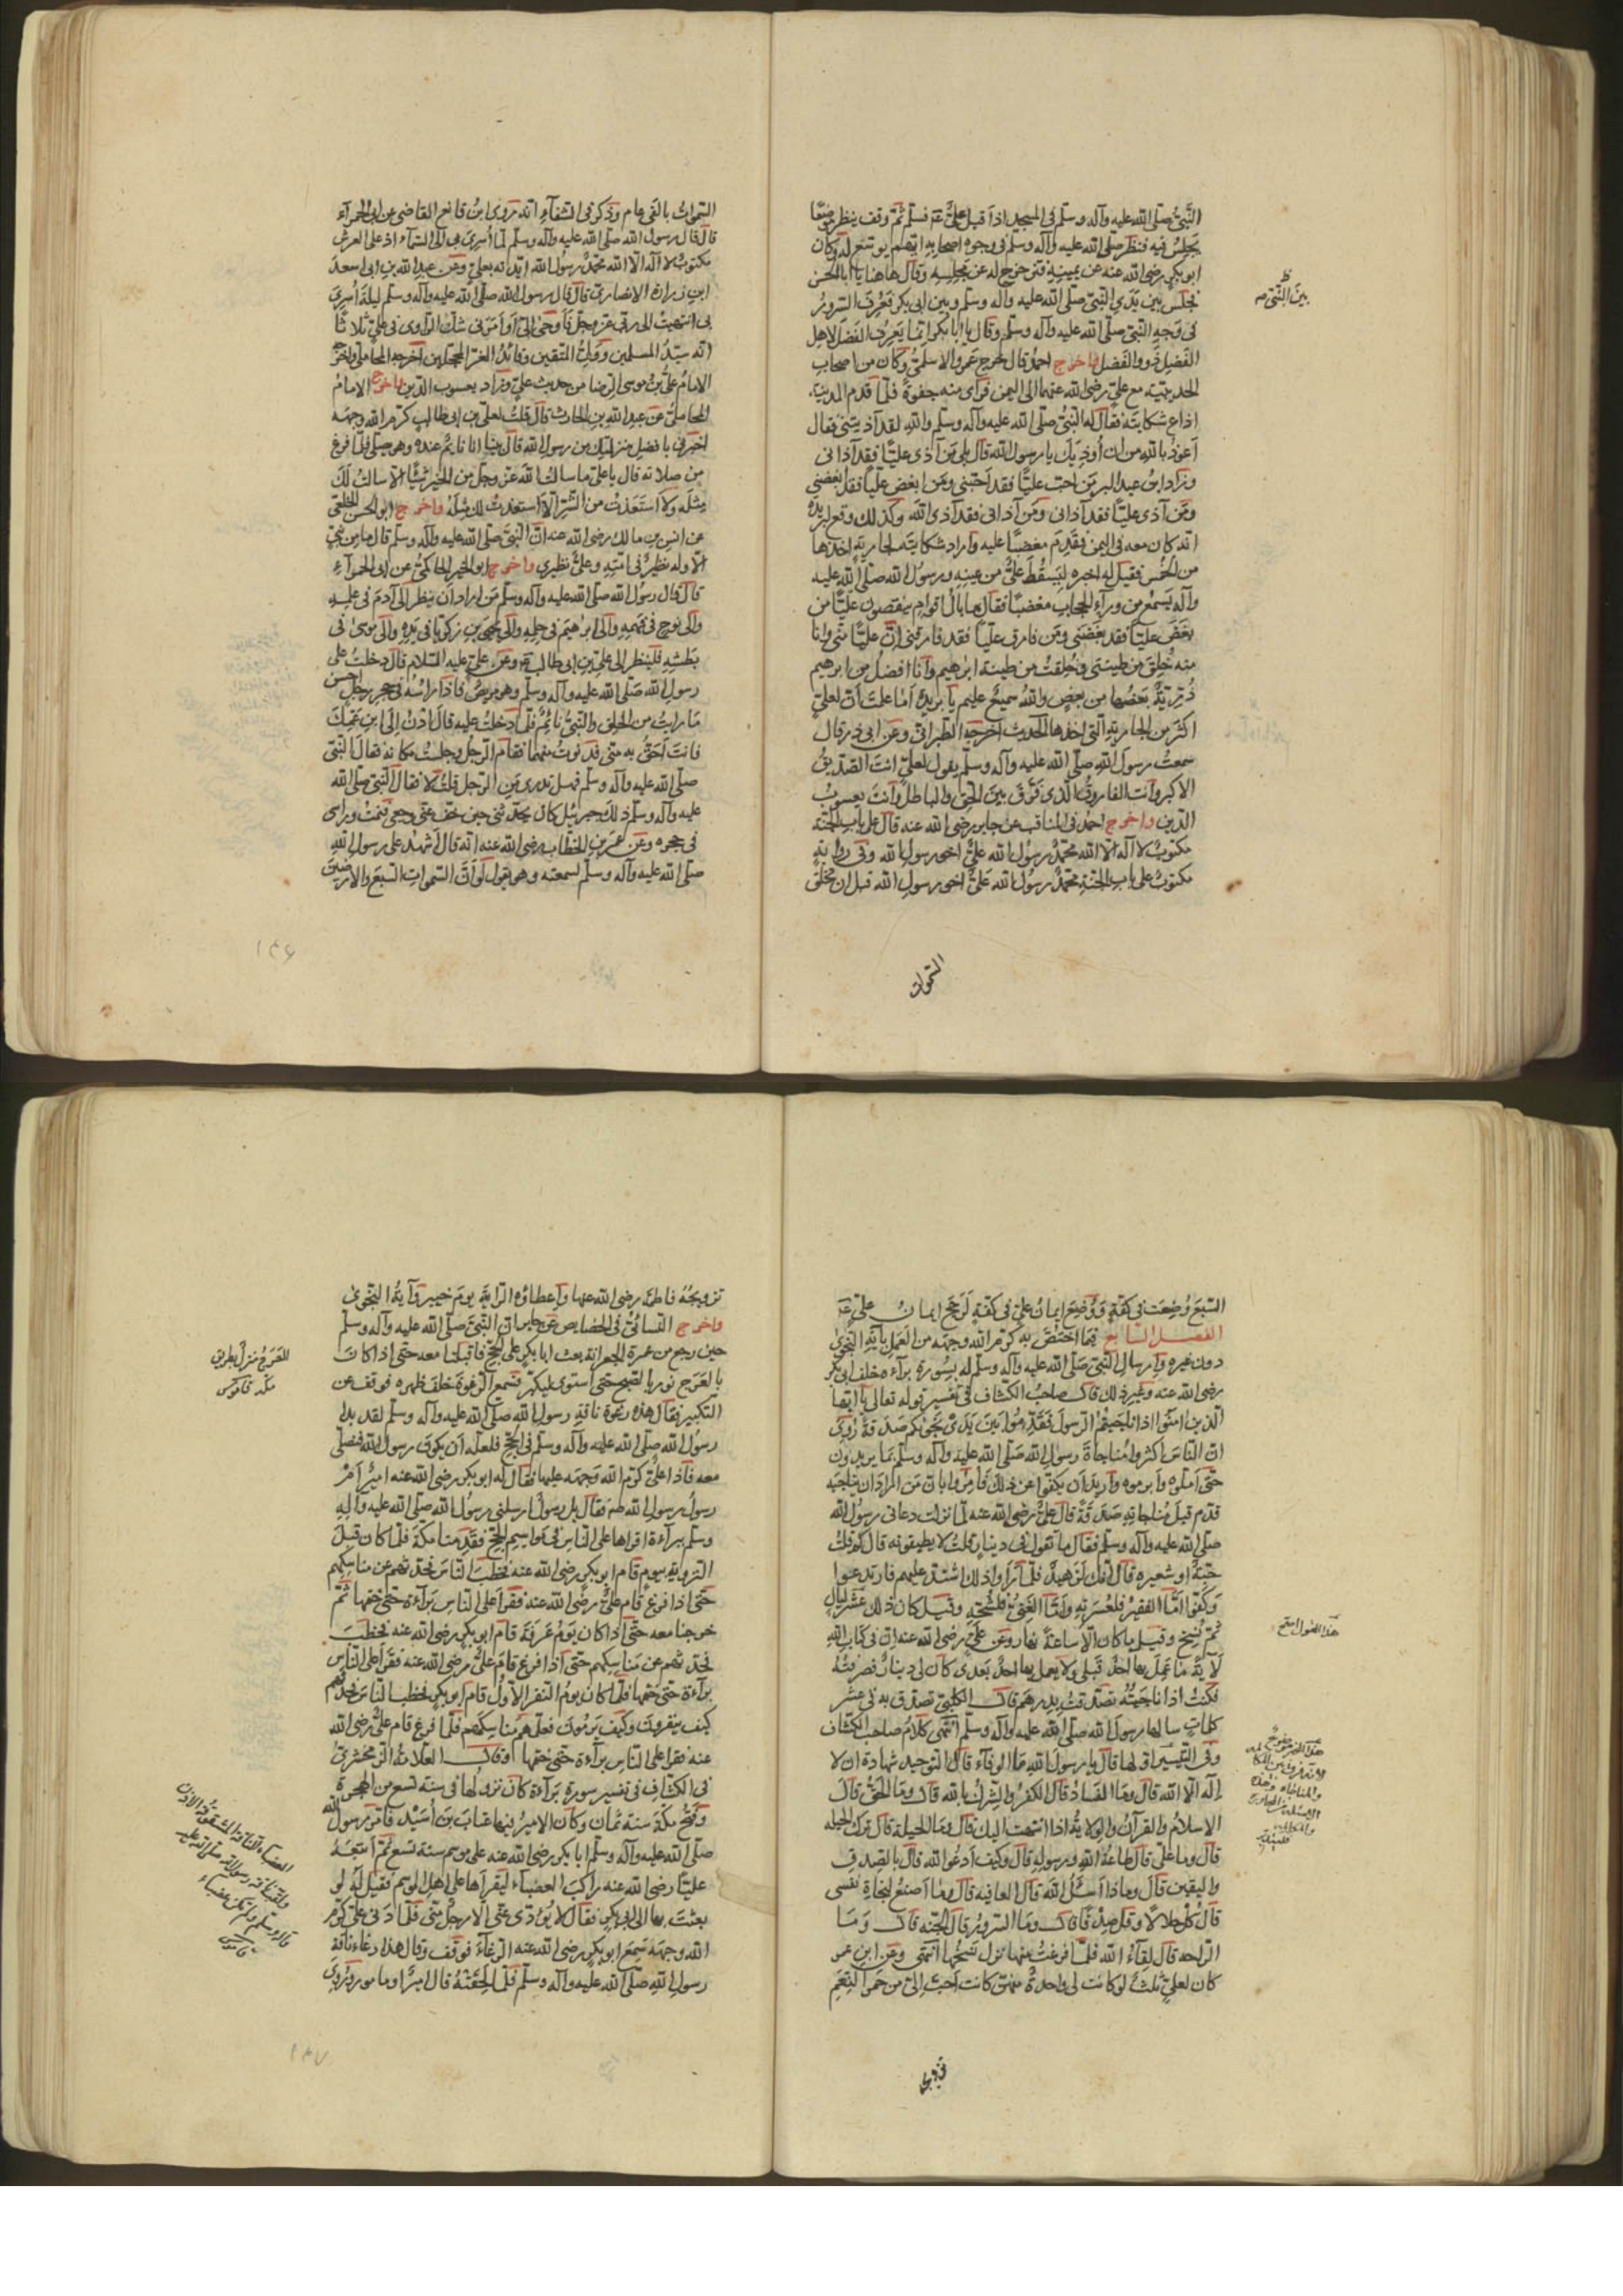 النَّبيُّ صلّى الله عليه وآله وسلم في المسجد اذ اقبل عليٌّ فسلّم ثمّ وقف ينظر موضعًا
يجلس فيه فنظر صلّى الله عليه وآله وسلم في وجوه اصحابه ايّهم يوسّع له وكان
ابو بكر رضى الله عنه عن يمينه فتزحزح له عن مجلسه وقال هاهنا يا ابا الحسن
فجلس بين يدي النبيّ صلّى الله عليه وآله وسلم وبين ابي بكر فعُرف السرور
في وجه النبيّ صلّى الله عليه وآله وسلم وقال يا ابا بكر انما يعرف الفضل لاهل
الفضل ذوو الفضل واخرج احمد قال خرج عمرو الاسلميّ وكان من اصحاب
الحديبية مع عليّ رضى الله عنهما الى اليمن فرأى منه جفوة فلمّا قدم المدينة
اذاع شكايته فقال له النبيّ صلّى الله عليه وآله وسلم والله لقد آذيتني فقال
أعوذ بالله من ان أُوذيك يا رسول الله قال بلى من آذى عليًّا فقد آذاني
وزاد ابن عبد البر من احبّ عليًّا فقد احبّني ومن ابغض عليًّا فقد ابغضني
ومن آذى عليًّا فقد آذاني ومن آذاني فقد آذى الله وكذلك وقع لبريدة
انه كان معه في اليمن فقدم مغضبًا عليه واراد شكايته لجارية اخذها
من الخُمس فقيل له اخبره ليسقط عليٌّ من عينه ورسول الله صلّى الله عليه
وآله يسمع من ورآء الحجاب مغضبًا فقال ما بال اقوام ينقصون عليًّا من
بغض عليًّا فقد بغضني ومن فارق عليًّا فقد فارقني انّ عليًّا منّي وانا
منه خُلق من طينتي وخُلقت من طينة ابرهيم وانا افضل من ابرهيم
ذُرّيّةً بعضها من بعض والله سميع عليم يا بريدة أما علمت أنّ لعليّ
اكثر من الجارية التي اخذها الحديث اخرجه الطبراني وعن ابي ذر قال
سمعت رسول الله صلّى الله عليه وآله وسلم يقول لعليّ انت الصّدّيق
الاكبر وانت الفاروق الّذى تفرّق بين الحق والباطل وانت يعسوب
الدّين واخرج احمد في المناقب عن جابر رضى الله عنه قال على باب الجنّة
مكتوب لا اله الّا الله محمّد رسول الله عليٌّ اخو رسول الله وفى رواية
مكتوب على باب الجنّة محمّد رسول الله عليٌّ اخو رسول الله قبل ان تخلق
السّموات
بين النّبيّ
السّموات بالفى عام وذكر في الشفآء انه روى ابن قانع القاضي عن ابى الحمرآء
قال قال رسول الله صلّى الله عليه وآله وسلم لما أُسري بي الى السّمآء اذ على العرش
مكتوب لا اله الّا الله محمّد رسول الله ايّدته بعليّ وعن عبد الله بن ابى اسعد
ابن زرارة الانصاري قال قال رسول الله صلّى الله عليه وآله وسلم ليلة أُسري
بي انتهيت الى ربّي عزّ وجلّ فأوحى اليّ او امرني شك الراوى في عليّ ثلاثًا
انه سيّد المسلمين ووليّ المتقين وقائد الغرّ المحجّلين اخرجه المحاملي واخرج
الامام عليّ بن موسى الرّضا من حديث عليّ وزاد يعسوب الدّين واخرج الامام
المحاملي عن عبد الله بن الحارث قال قلت لعليّ بن ابى طالب كرّم الله وجهه
اخبرني بافضل منزلتك من رسول الله قال بينا انا نايم عنده وهو يصلّي فلمّا فرغ
من صلاته قال يا عليّ ما سألت الله عزّ وجلّ من الخير شيئًا الّا سألت لك
مثله ولا استعذت من الشّرّ الّا استعذت لك مثله واخرج ابو الحسن الخلعي
عن انس بن مالك رضى الله عنه انّ النّبيّ صلّى الله عليه وآله وسلم قال ما من نبيّ
الّا وله نظير في امّته وعليّ نظيري واخرج ابو الخير الحاكمي عن ابى الحمرآء
قال قال رسول الله صلّى الله عليه وآله وسلم من اراد ان ينظر الى آدم في علمه
والى نوح في فهمه والى ابرهيم في حلمه والى يحيى بن زكريا في زهده والى موسى في
بطشه فلينظر الى عليّ بن ابى طالب وعن عليّ عليه السّلام قال دخلت على
رسول الله صلّى الله عليه وآله وسلم وهو مريض فاذا رأسه في حجر رجل احسن
ما رايت من الخلق والنّبيّ نائم فلمّا دخلت عليه قال ادن الى ابن عمّك
فانت احقّ به منّي فدنوت منهما فقام الرّجل وجلست مكانه فقال النّبيّ
صلّى الله عليه وآله وسلم فهل تدرى من الرّجل قلت لا فقال النّبيّ صلّى الله
عليه وآله وسلم ذلك جبرئيل كان يحدّثني حين خفّ عنّي وجعى فنمت ورأسي
في حجره وعن عمر بن الخطّاب رضى الله عنه انه قال اشهد على رسول الله
صلّى الله عليه وآله وسلم لسمعته وهو يقول لو انّ السّموات السّبع والارضين
١٤٦
السّبع وُضعت في كفّة ووُضع ايمان عليّ في كفّة لرجح ايمان عليّ
الفصل السّابع فيما اختصّ به كرّم الله وجهه من العمل بآية النّجوى
دون غيره وارسال النّبيّ صلّى الله عليه وآله وسلم له بسورة برآءة خلف ابى بكر
رضى الله عنه وغير ذلك قال صاحب الكشّاف في تفسير قوله تعالى يا ايّها
الّذين امنوا اذا ناجيتم الرّسول فقدّموا بين يدى نجويكم صدقة رُوى
انّ النّاس اكثروا مناجاة رسول الله صلّى الله عليه وآله وسلم بما يريدون
حتّى املّوه وابرموه واريد ان يكفّوا عن ذلك فامروا بانّ من اراد ان يناجيه
قدّم قبل مناجاته صدقة قال عليّ رضى الله عنه لمّا نزلت دعاني رسول الله
صلّى الله عليه وآله وسلم فقال ما تقول في دينار قلت لا يطيقونه قال كم قلت
حبّة او شعيرة قال انّك لزهيد فلمّا رأوا ذلك اشتدّ عليهم فارتدعوا
وكفّوا امّا الفقير فلعسرته وامّا الغنيّ فلشحّه وقيل كان ذلك عشر ليال
ثمّ نسخ وقيل ما كان الّا ساعة نهار وعن عليّ رضى الله عنه انّ في كتاب الله
لآية ما عمل بها احد قبلى ولا يعمل بها احد بعدى كان لى دينار فصرفته
فكنت اذا ناجيته تصدّقت بدرهم قال الكلبي تصدّق به في عشر
كلمات سالها رسول الله صلّى الله عليه وآله وسلم انتهى كلام صاحب الكشّاف
وفى التّيسير اولها قال يا رسول الله ما الوفآء قال التّوحيد شهادة ان لا
اله الّا الله قال وما الفساد قال الكفر والشّرك بالله قال وما الحقّ قال
الاسلام والقرآن والولاية اذا انتهت اليك قال وما الحيلة قال ترك الحيلة
قال وما عليّ قال طاعة الله ورسوله قال وكيف ادعو الله قال بالصّدق
واليقين قال وماذا اسئل الله قال العافية قال وما اصنع لنجاة نفسي
قال كُل حلالًا وقُل صدقًا قال وما السّرور قال الجنّة قال وما
الرّاحة قال لقآء الله فلمّا فرغت منها نزل نسخها انتهى وعن ابن عمر
كان لعليّ ثلث لو كانت لى واحدة منهنّ كانت احبّ اليّ من حمر النّعم
تزويجه
هذا القول اصحّ
تزويجه فاطمة رضى الله عنها واعطاؤه الرّاية يوم خيبر وآية النّجوى
واخرج النّسائي في الخصايص عن جابر انّ النّبيّ صلّى الله عليه وآله وسلم
حين رجع من عمرة الجعرانة بعث ابا بكر على الحجّ فاقبلنا معه حتّى اذا كانت
بالعرج ثوّب بالصّبح حتى استوى ليكبّر فسمع الرّغوة خلف ظهره فوقف عن
التّكبير فقال هذه رغوة ناقة رسول الله صلّى الله عليه وآله وسلم لقد بدا
رسول الله صلّى الله عليه وآله وسلم في الحجّ فلعلّه ان يكون رسول الله فنصلّي
معه فاذا عليّ كرّم الله وجهه عليها فقال له ابو بكر رضى الله عنه امير ام
رسول فقال بل رسول ارسلني رسول الله صلّى الله عليه وآله
وسلم ببرآءة اقرأها على النّاس في مواسم الحجّ فقدمنا مكّة فلمّا كان قبل
التّروية بيوم قام ابو بكر رضى الله عنه فخطب النّاس فحدّثهم عن مناسكهم
حتّى اذا فرغ قام عليّ رضى الله عنه فقرأ على النّاس برآءة حتّى ختمها ثمّ
خرجنا معه حتّى اذا كان يوم عرفة قام ابو بكر رضى الله عنه فخطب
فحدّثهم عن مناسكهم حتى اذا فرغ قام عليّ رضى الله عنه فقرأ على النّاس
برآءة حتى ختمها فلمّا كان يوم النّفر الاوّل قام ابو بكر فخطب النّاس فحدّثهم
كيف ينفرون وكيف يرمون فعلّمهم مناسكهم فلمّا فرغ قام عليّ رضى الله
عنه فقرأ على النّاس برآءة حتى ختمها وقال العلامة الزّمخشري
في الكشّاف في تفسير سورة برآءة كان نزولها في سنة تسع من الهجرة
وفتح مكّة سنة ثمان وكان الامير فيها عتاب بن اسيد فامّر رسول الله
صلّى الله عليه وآله وسلم ابا بكر رضى الله عنه على موسم سنة تسع ثمّ اتبعه
عليًّا رضى الله عنه راكب العضبآء ليقرأها على اهل الموسم فقيل له لو
بعثت بها الى ابى بكر فقال لا يؤدّى عنّي الّا رجل منّي فلمّا دنى عليّ كرّم
الله وجهه سمع ابو بكر رضى الله عنه الرّغآء فوقف وقال هذا رغاء ناقة
رسول الله صلّى الله عليه وآله وسلم فلمّا لحقه قال امير او مامور وروى
العرج منزل بطريق
مكّة قاموس
العضباء النّاقة المشقوقة الاذن
ولقب ناقة رسول الله صلّى الله عليه
وآله وسلم ولم تكن عضباء
قاموس
١٤٧